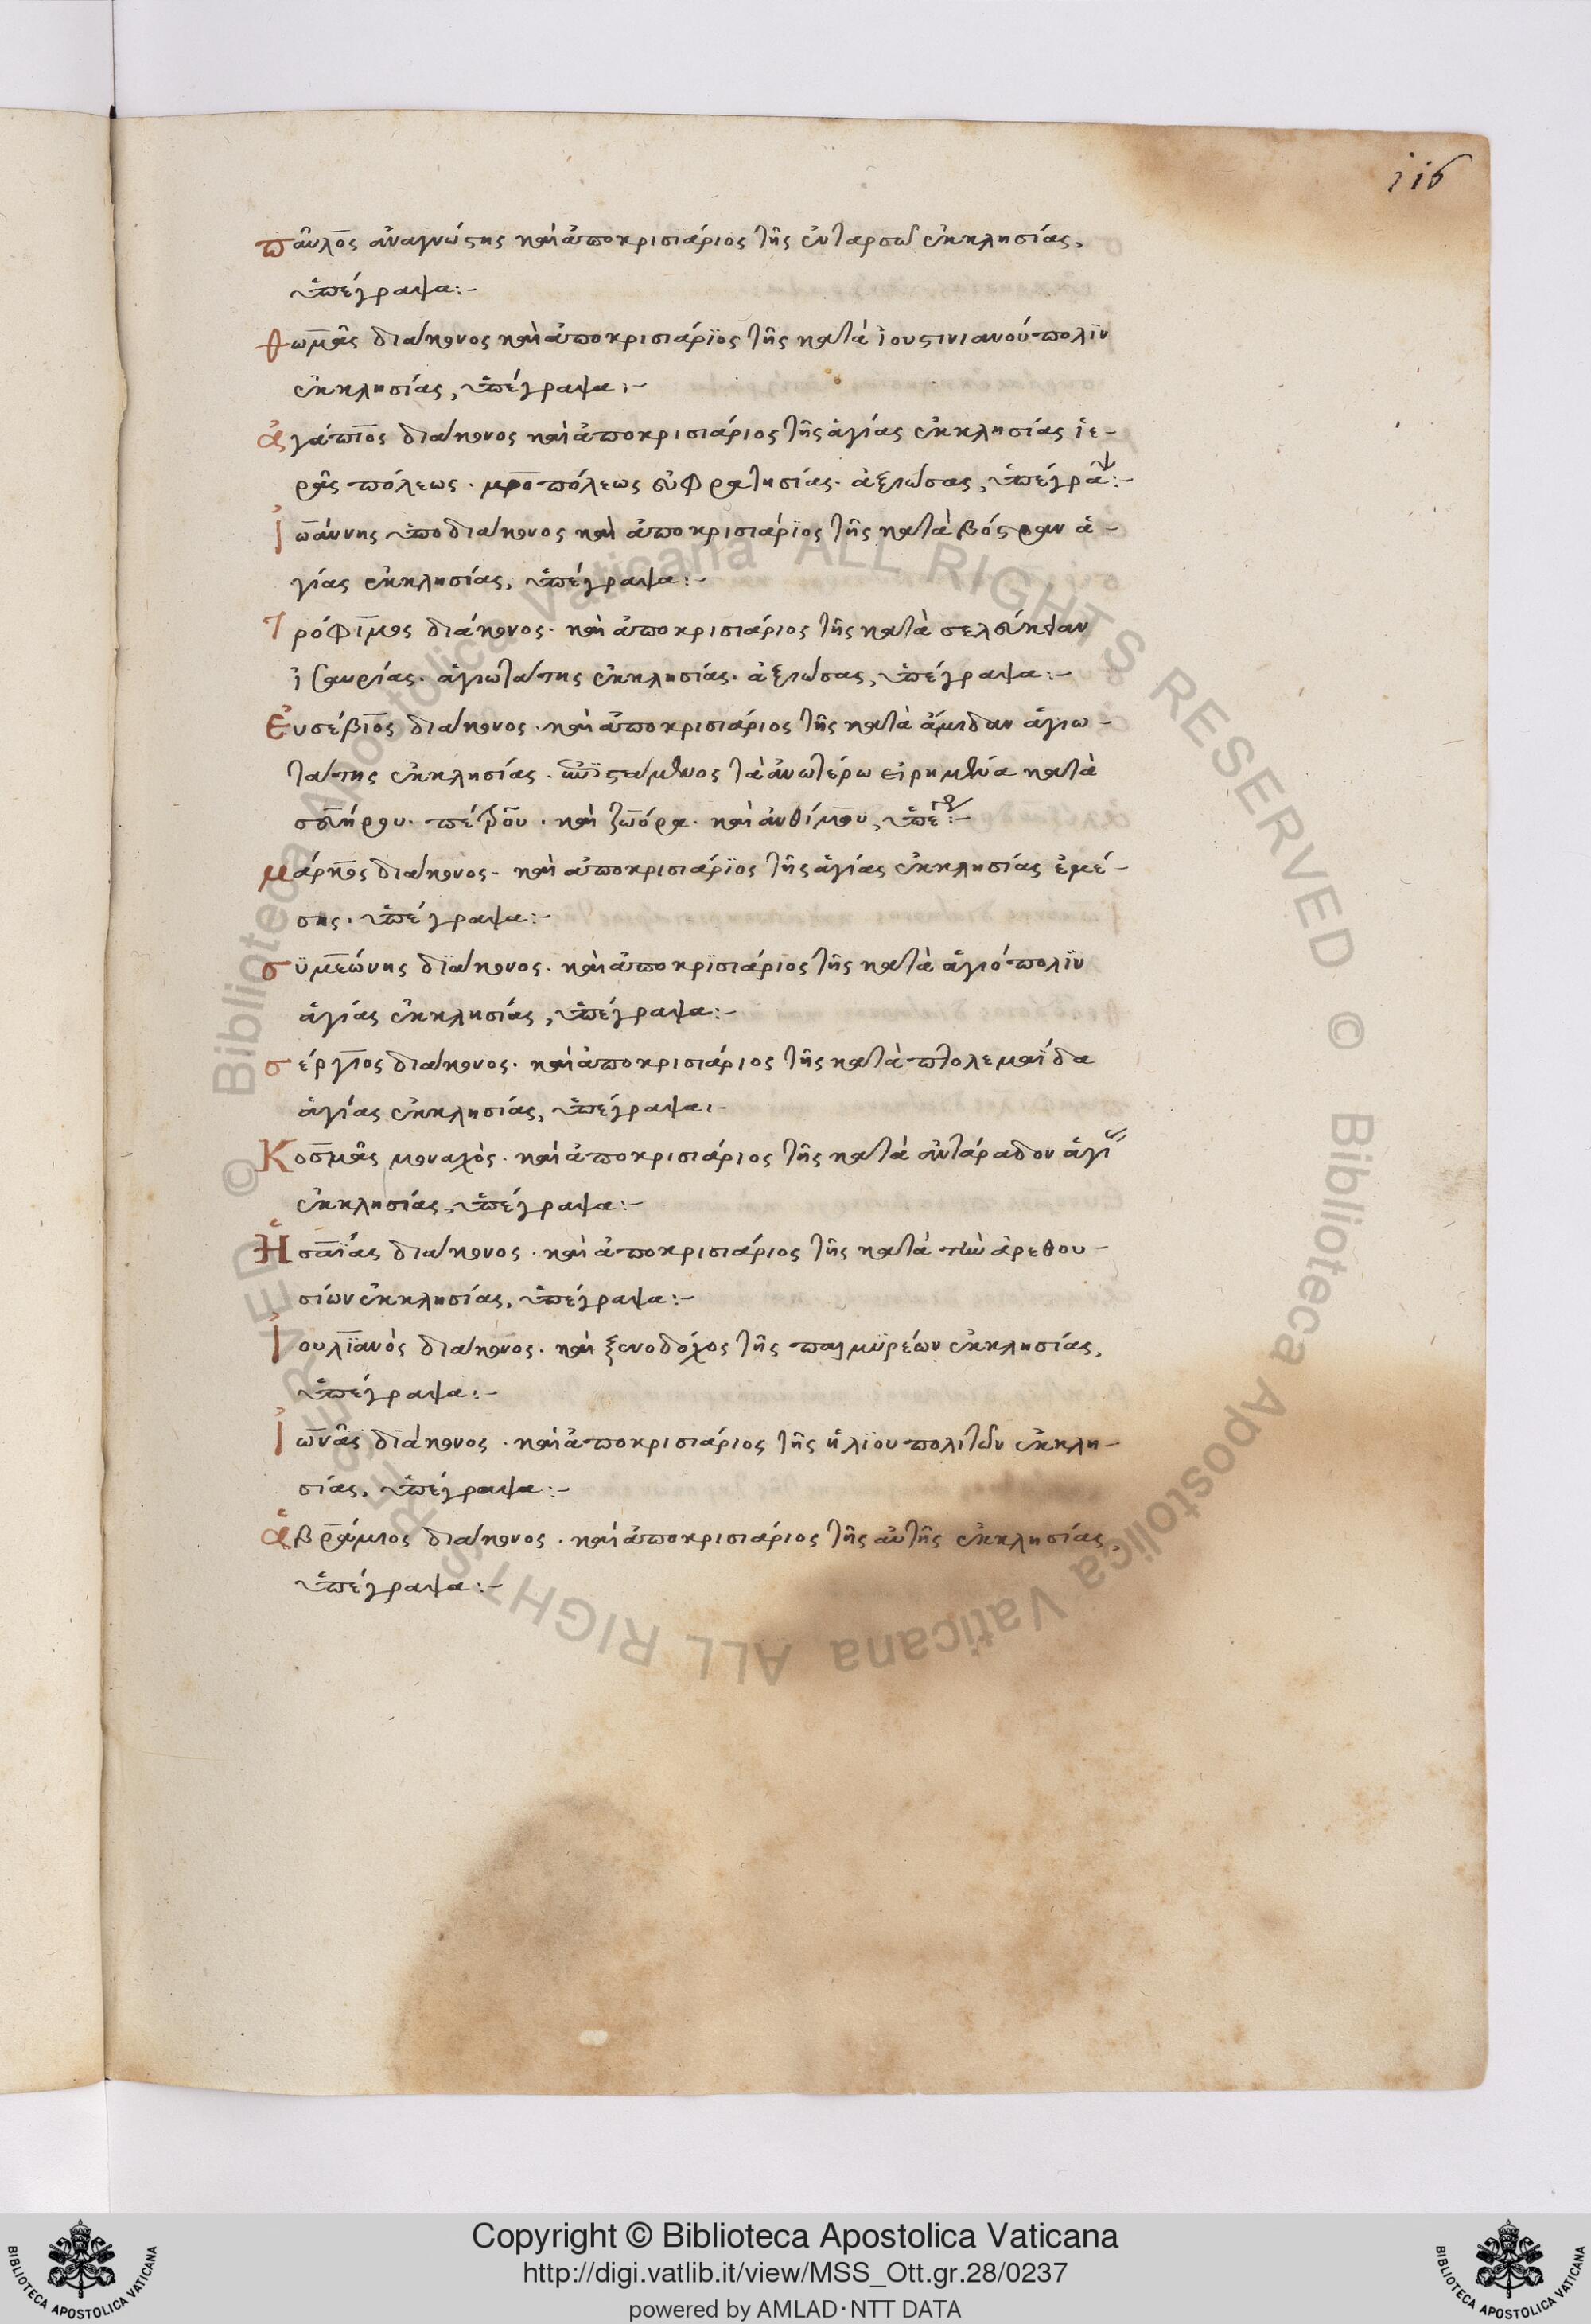 116
παῦλος ἀναγνώστης καὶ ἀποκρισιάριος τῆς ἐν ταρσῶ ἐκκλησίας,
ὑπέγραψα:-
θωμᾶς διάκονος καὶ ἀποκρισιάριος τῆς κατὰ ἰουστινιανούπολϊν
ἐκκλησίας, ὑπέγραψα:-
ἀγάπιος διάκονος καὶ ἀποκρισιάριος τῆς ἁγίας ἐκκλησίας ἱε-
ρᾶς πόλεως. μροπόλεως εὐφρατησίας. ἀξιώσας, ὑπέγραψ:-
ἰωάννης ὑποδιάκονος καὶ ἀποκρισιάρϊος τῆς κατὰ βόστραν ἁ-
γίας ἐκκλησίας, ὑπέγραψα:-
τρόφιμος διάκονος. καὶ ἀποκρισιάριος τῆς κατὰ σελεύκειαν
ἰσαυρίας. ἁγιωτάτης ἐκκλησίας. ἀξιώσας, ὑπέγραψα:-
εὐσέβιος διάκονος. καὶ ἀποκρισιάριος τῆς κατὰ ἄμιδαν ἁγιω-
τάτης ἐκκλησίας. ἐνϊστάμενος τὰ ἀνωτέρω εἰρημένα κατὰ
σευήρου. πέτρου. καὶ ζωόρα. καὶ ἀνθίμου, ὑπέγρ:-
μάρκος διάκονος. καὶ ἀποκρισιάρϊος τῆς ἁγίας ἐκκλησίας ἐμέ-
σης. ὑπέγραψα:-
σϋμεώνης δϊάκονος. καὶ ἀποκρϊσιάριος τῆς κατὰ ἁγιόπολϊν
ἁγίας ἐκκλησίας, ὑπέγραψα:-
σέργιος διάκονος. καὶ ἀποκρισιάριος τῆς κατὰ πτολεμαΐδα
ἁγίας ἐκκλησίας, ὑπέγραψα:-
Κοσμᾶς μοναχὸς. καὶ ἀποκρισιάριος τῆς κατὰ ἀντάραδον ἁγί
ἐκκλησίας, ὑπέγραψα:-
Ἡσαΐας διάκονος. καὶ ἀποκρισιάριος τῆς κατὰ τῶν ἀρεθου-
σίων ἐκκλησίας, ὑπέγραψα:-
ἰουλϊανὸς διάκονος. καὶ ξενοδόχος τῆς παλμϋρέων ἐκκλησίας,
ὑπέγραψα:-
ἰωνᾶς δϊάκονος. καὶ ἀποκρισιάριος τῆς ἡλϊουπολιτῶν ἐκκλη-
σίας, ὑπέγραψα:-
ἀβράμιος διάκονος. καὶ ἀποκρισιάριος τῆς αὐτῆς ἐκκλησίας,
ὑπέγραψα:-
© Biblioteca Apostolica Vaticana ALL RIGHTS RESERVED © Biblioteca Apostolica Vaticana ALL RIGHTS RESERVED
BIBLIOTECA APOSTOLICA VATICANA
Copyright © Biblioteca Apostolica Vaticana
http://digi.vatlib.it/view/MSS_Ott.gr.28/0237
powered by AMLAD·NTT DATA
BIBLIOTECA APOSTOLICA VATICANA